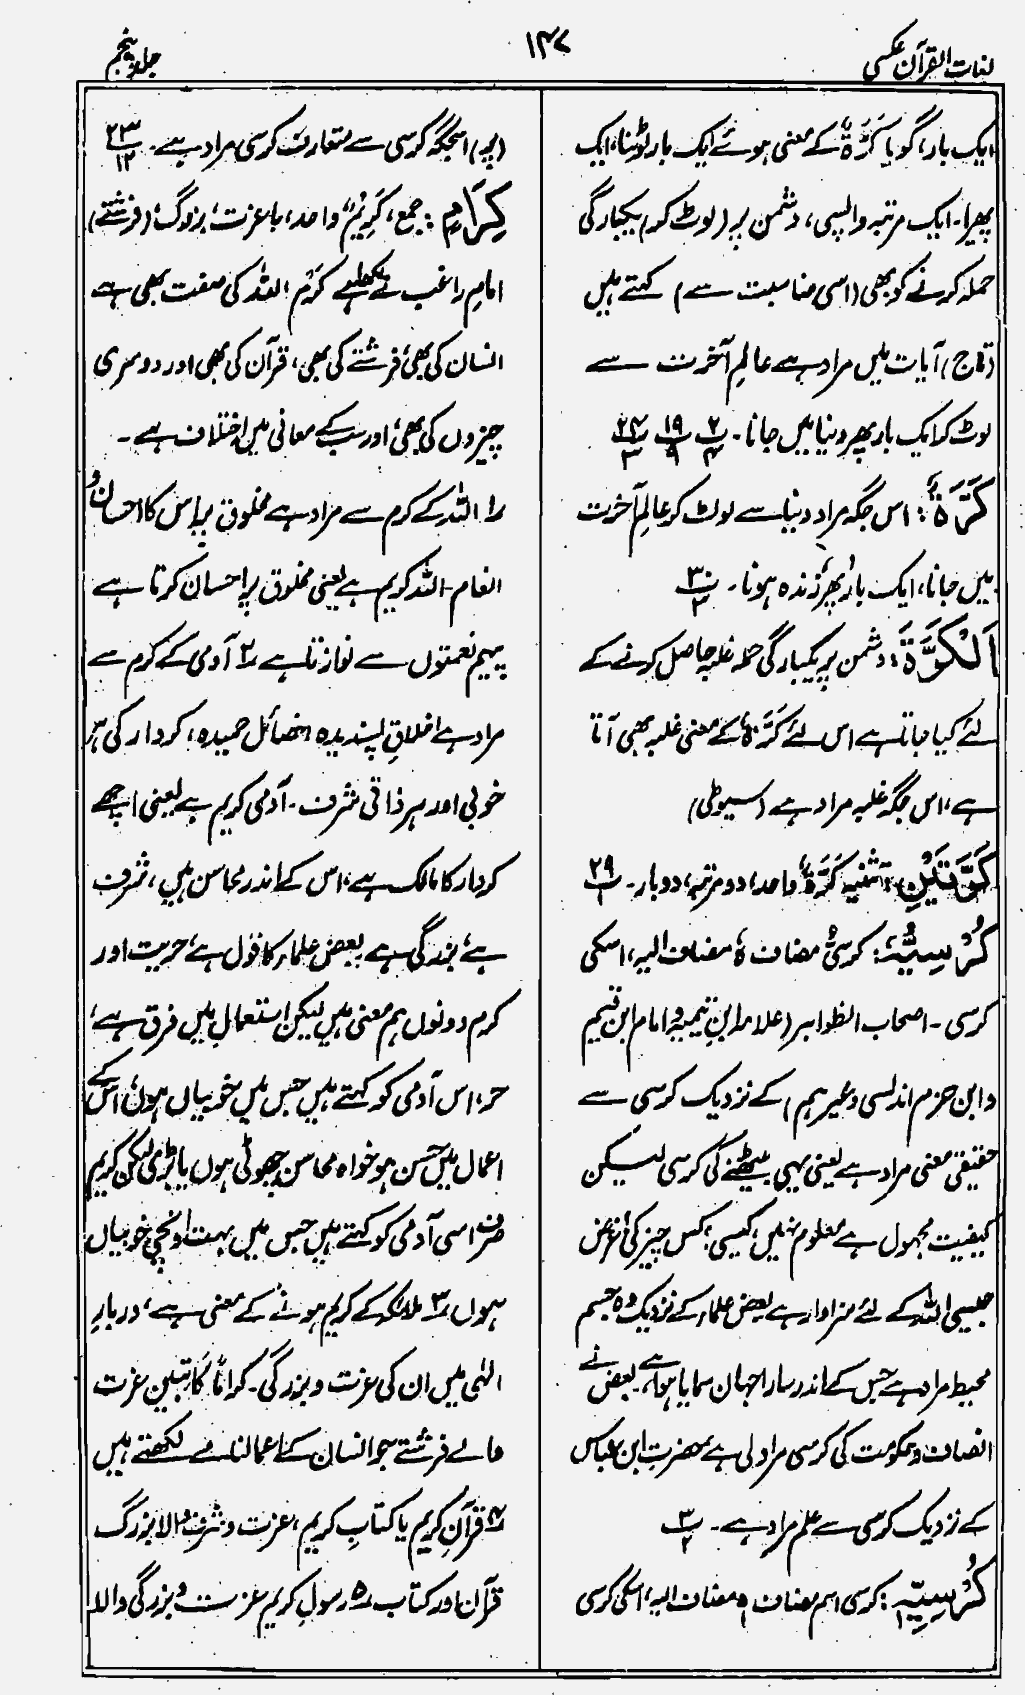 لغات القرآن عکسی
۱۴۷
جلد پنجم
ایک بار، گویا کَرَّۃٌ کے معنی ہوئے ایک بار لوٹنا، ایک
پھیرا۔ ایک مرتبہ واپسی، دشمن پر (لوٹ کر) یکبارگی
حملہ کرنے کو بھی (اسی مناسبت سے) کہتے ہیں
(تاج) آیات میں مراد ہے عالمِ آخرت سے
لوٹ کر ایک بار پھر دنیا میں جانا۔ پ۲ ۴ پ۱۹ ۹ پ۲۴ ۳
کَرَّۃً: اس جگہ مراد دنیا سے لوٹ کر عالمِ آخرت
میں جانا، ایک بار پھر زندہ ہونا۔ پ۳۰ ۳
اَلْکَرَّۃَ: دشمن پر یکبارگی حملہ غلبہ حاصل کرنے کے
لئے کیا جاتا ہے اس لئے کَرَّۃٌ کے معنی غلبہ بھی آتا
ہے، اس جگہ غلبہ مراد ہے (سیوطی)
کَرَّتَیْنِ: تثنیہ کَرَّۃٌ واحد، دو مرتبہ، دو بار۔ پ۲۹ ۱
کُرْسِیُّہٗ: کرسیُّ مضاف ہٗ مضاف الیہ، اسکی
کرسی۔ اصحاب الظواہر (علامہ ابنِ تیمیہ و امام ابن قیم
و ابن حزم اندلسی وغیرہم) کے نزدیک کرسی سے
حقیقی معنی مراد ہے یعنی یہی بیٹھنے کی کرسی لیکن
کیفیت مجہول ہے معلوم نہیں، کیسی؛ کس چیز کی؛ غرض
جیسی اللہ کے لئے سزاوار ہے بعض علماء کے نزدیک وہ جسم
محیط مراد ہے جس کے اندر سارا جہان سمایا ہوا ہے، بعض نے
انصاف و حکومت کی کرسی مراد لی ہے حضرت ابن عباس
کے نزدیک کرسی سے علم مراد ہے۔ پ۳ ۲
کُرْسِیِّہٖ: کرسی اسم مضاف ہٖ مضاف الیہ، اسکی کرسی
(پر) اسجگہ کرسی سے متعارف کرسی مراد ہے۔ پ۲۳ ۱۲
کِرَامٍ: جمع، کَرِیْمٌ واحد، باعزت، بزرگ، (فرشتے)
امام راغب نے لکھا ہے کَرَم اللہ کی صفت بھی ہے
انسان کی بھی، فرشتے کی بھی، قرآن کی بھی اور دوسری
چیزوں کی بھی، اور سب کے معانی میں اختلاف ہے۔
۱؎ اللہ کے کرم سے مراد ہے مخلوق پر اس کا احسان و
انعام۔ اللہ کریم ہے یعنی مخلوق پر احسان کرتا ہے
پیہم نعمتوں سے نوازتا ہے ۲؎ آدمی کے کرم سے
مراد ہے اخلاقِ پسندیدہ خصائل حمیدہ، کردار کی ہر
خوبی اور ہر ذاتی شرف۔ آدمی کریم ہے یعنی اچھے
کردار کا مالک ہے، اس کے اندر محاسن ہیں، شرف
ہے، بزرگی ہے بعض علماء کا قول ہے، حریت اور
کرم دونوں ہم معنی ہیں لیکن استعمال میں فرق ہے،
حر، اس آدمی کو کہتے ہیں جس میں خوبیاں ہوں، اس کے
اعمال میں حسن ہو خواہ محاسن چھوٹی ہوں یا بڑی لیکن کریم
صرف اسی آدمی کو کہتے ہیں جس میں بہت اونچی خوبیاں
ہوں ۳؎ ملائکہ کے کریم ہونے کے معنی ہے، دربارِ
الٰہی میں ان کی عزت و بزرگی۔ کِرَامًا کَاتِبِین عزت
والے فرشتے جو انسان کے اعمالنامے لکھتے ہیں
۴؎ قرآنِ کریم یا کتابِ کریم، عزت و شرف والا بزرگ
قرآن اور کتاب ۵؎ رسولِ کریم عزت و بزرگی والا